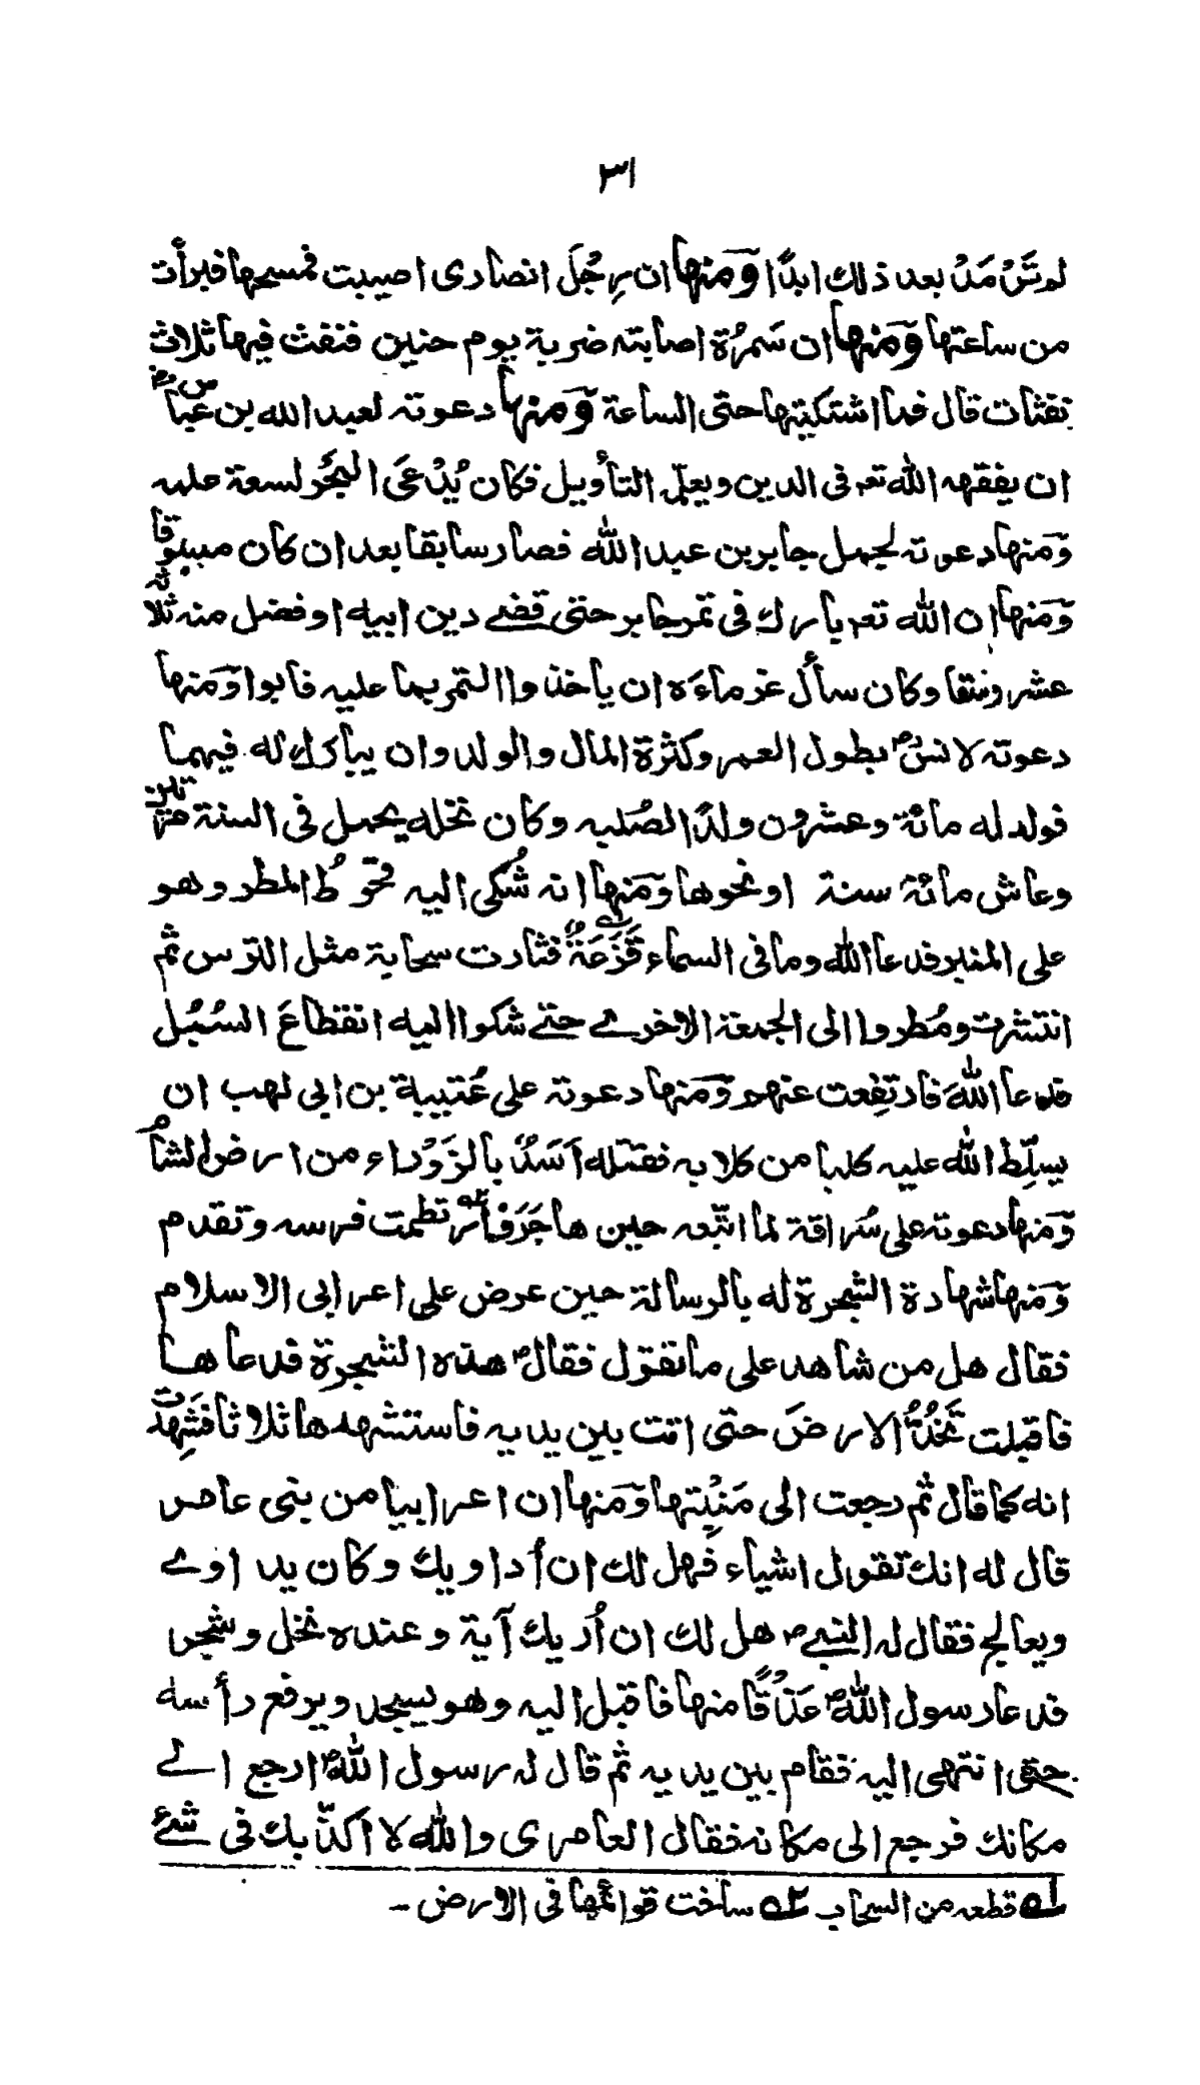 ٣١
لم تَرْمَدْ بعد ذلك ابدًا وَمنها ان رِجْلَ انصاری اصيبت فمسحها فبرأت
من ساعتها وَمنها ان سَمُرَة اصابته ضربة يوم حنين فنفث فيها ثلاث
نفثات قال فما اشتكيتها حتى الساعة وَمنها دعوته لعبد الله بن عباس رض
ان يفقهه الله تعہ فى الدين ويعلّم التأويل فكان يُدْعَى البَحْر لسعة علمه
وَمنها دعوته لجمل جابر بن عبد الله فصار سابقا بعد ان كان مسبوقا
وَمنها ان الله تعہ بارك فى تمر جابر حتى قضے دين ابيه او فضل منه ثلاثة
عشر وسقا وكان سأل غرماءَه ان ياخذوا التمر بما عليه فابوا وَمنها
دعوته لانس رض بطول العمر وكثرة المال والولد وان يبارك له فيهما
فولد له مائة وعشرون ولدًا لصُلبه وكان نخله يحمل فى السنة مرتين
وعاش مائة سنة او نحوها وَمنها انه شُكى اليه قحوطُ المطر وهو
على المنبر فدعا الله وما فى السماء قَزَعَةٌ فثارت سحابة مثل الترس ثم
انتشرت ومُطروا الى الجمعة الاخرے حتے شكوا اليه انقطاعَ السُبُل
فدعا اللهَ فارتفعت عنهم وَمنها دعوته على عُتيبة بن ابى لهب ان
يسلّط الله عليه كلبا من كلابه فقتله اَسَدٌ بالزَوْراء من ارض الشأم
وَمنها دعوته على سُراقة لما اتّبعه حين هاجَرَ فارتطمت فرسه وتقدم
وَمنها شهادة الشجرة له بالرسالة حين عرض على اعرابى الاسلام
فقال هل من شاهد على ما تقول فقال ؐ هذه الشجرة فدعاها
فاقبلت تَخُدُّ الارضَ حتى اتت بين يديه فاستشهدها ثلاثا فشَهِدَتْ
انه كما قال ثم رجعت الى مَنْبِتها وَمنها ان اعرابيا من بنى عامر
قال له انك تقول اشياء فهل لك ان أداويك وكان يداوے
ويعالج فقال له النبے ؐ هل لك ان أُريك آية وعنده نخل وشجر
فدعا رسول الله ؐ عَذْقًا منها فاقبل اليه وهو يسجد ويرفع رأسه
حتى انتهى اليه فقام بين يديه ثم قال له رسول الله ؐ ارجع الے
مكانك فرجع الى مكانه فقال العامرى والله لا اكذّبك فى شئ
له قطعه من السحاب ٢ه ساخت قوائمها فى الارض ۔